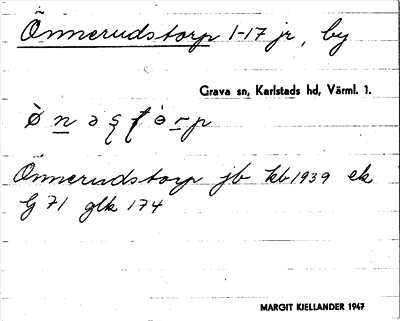 Önnerudstorp 1-17 jr, by
Grava sn, Karlstads hd, Värml. 1.
Önnerudstorp jb kb 1939 ek
G 71 glk 174
MARGIT KJELLANDER 1947